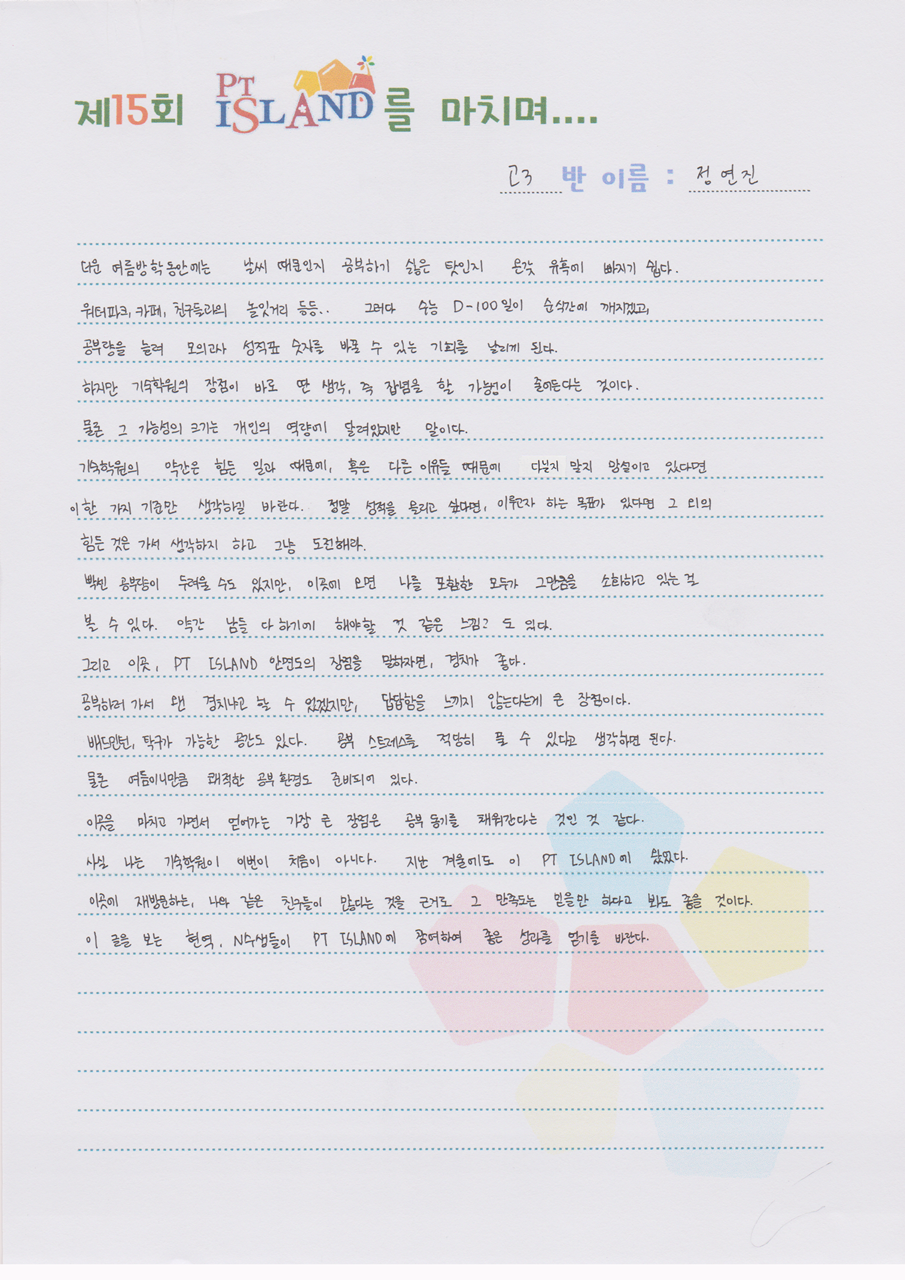 제15회 PT ISLAND를 마치며....
고3 반 이름 : 정연진
더운 여름방학동안에는 날씨 때문인지 공부하기 싫은 탓인지 온갖 유혹에 빠지기 쉽다.
워터파크, 카페, 친구들과의 놀잇거리 등등.. 그러다 수능 D-100일이 순식간에 깨지겠고,
공부량을 늘려 모의고사 성적표 숫자를 바꿀 수 있는 기회를 날리게 된다.
하지만 기숙학원의 장점이 바로 딴 생각, 즉 잡념을 할 가능성이 줄어든다는 것이다.
물론 그 가능성의 크기는 개인의 역량에 달려있지만 말이다.
기숙학원의 약간은 힘든 일과 때문에, 혹은 다른 이유들 때문에 맞지 망설이고 있다면
이 한 가지 기준만 생각하길 바란다. 정말 성적을 올리고 싶다면, 이루고자 하는 목표가 있다면 그 외의
힘든 것은 가서 생각하지 하고 그냥 도전해라.
빡빡 공부량이 두려울 수도 있지만, 이곳에 오면 나를 포함한 모두가 그만큼을 소화하고 있는 걸
볼 수 있다. 약간 남들 다 하기에 해야할 것 같은 느낌? 도 있다.
그리고 이곳, PT ISLAND 안면도의 장점을 말하자면, 경치가 좋다.
공부하러 가서 왠 경치냐고 할 수 있겠지만, 답답함을 느끼지 않는다는게 큰 장점이다.
배드민턴, 탁구가 가능한 공간도 있다. 공부 스트레스를 적당히 풀 수 있다고 생각하면 된다.
물론 여름이니만큼 쾌적한 공부 환경도 준비되어 있다.
이곳을 마치고 가면서 얻어가는 가장 큰 장점은 공부 동기를 채워간다는 것인 것 같다.
사실 나는 기숙학원이 이번이 처음이 아니다. 지난 겨울에도 이 PT ISLAND에 왔었다.
이곳에 재방문하는, 나와 같은 친구들이 많다는 것을 근거로 그 만족도는 믿을만 하다고 봐도 좋을 것이다.
이 글을 보는 현역, N수생들이 PT ISLAND에 참여하여 좋은 성과를 얻기를 바란다.